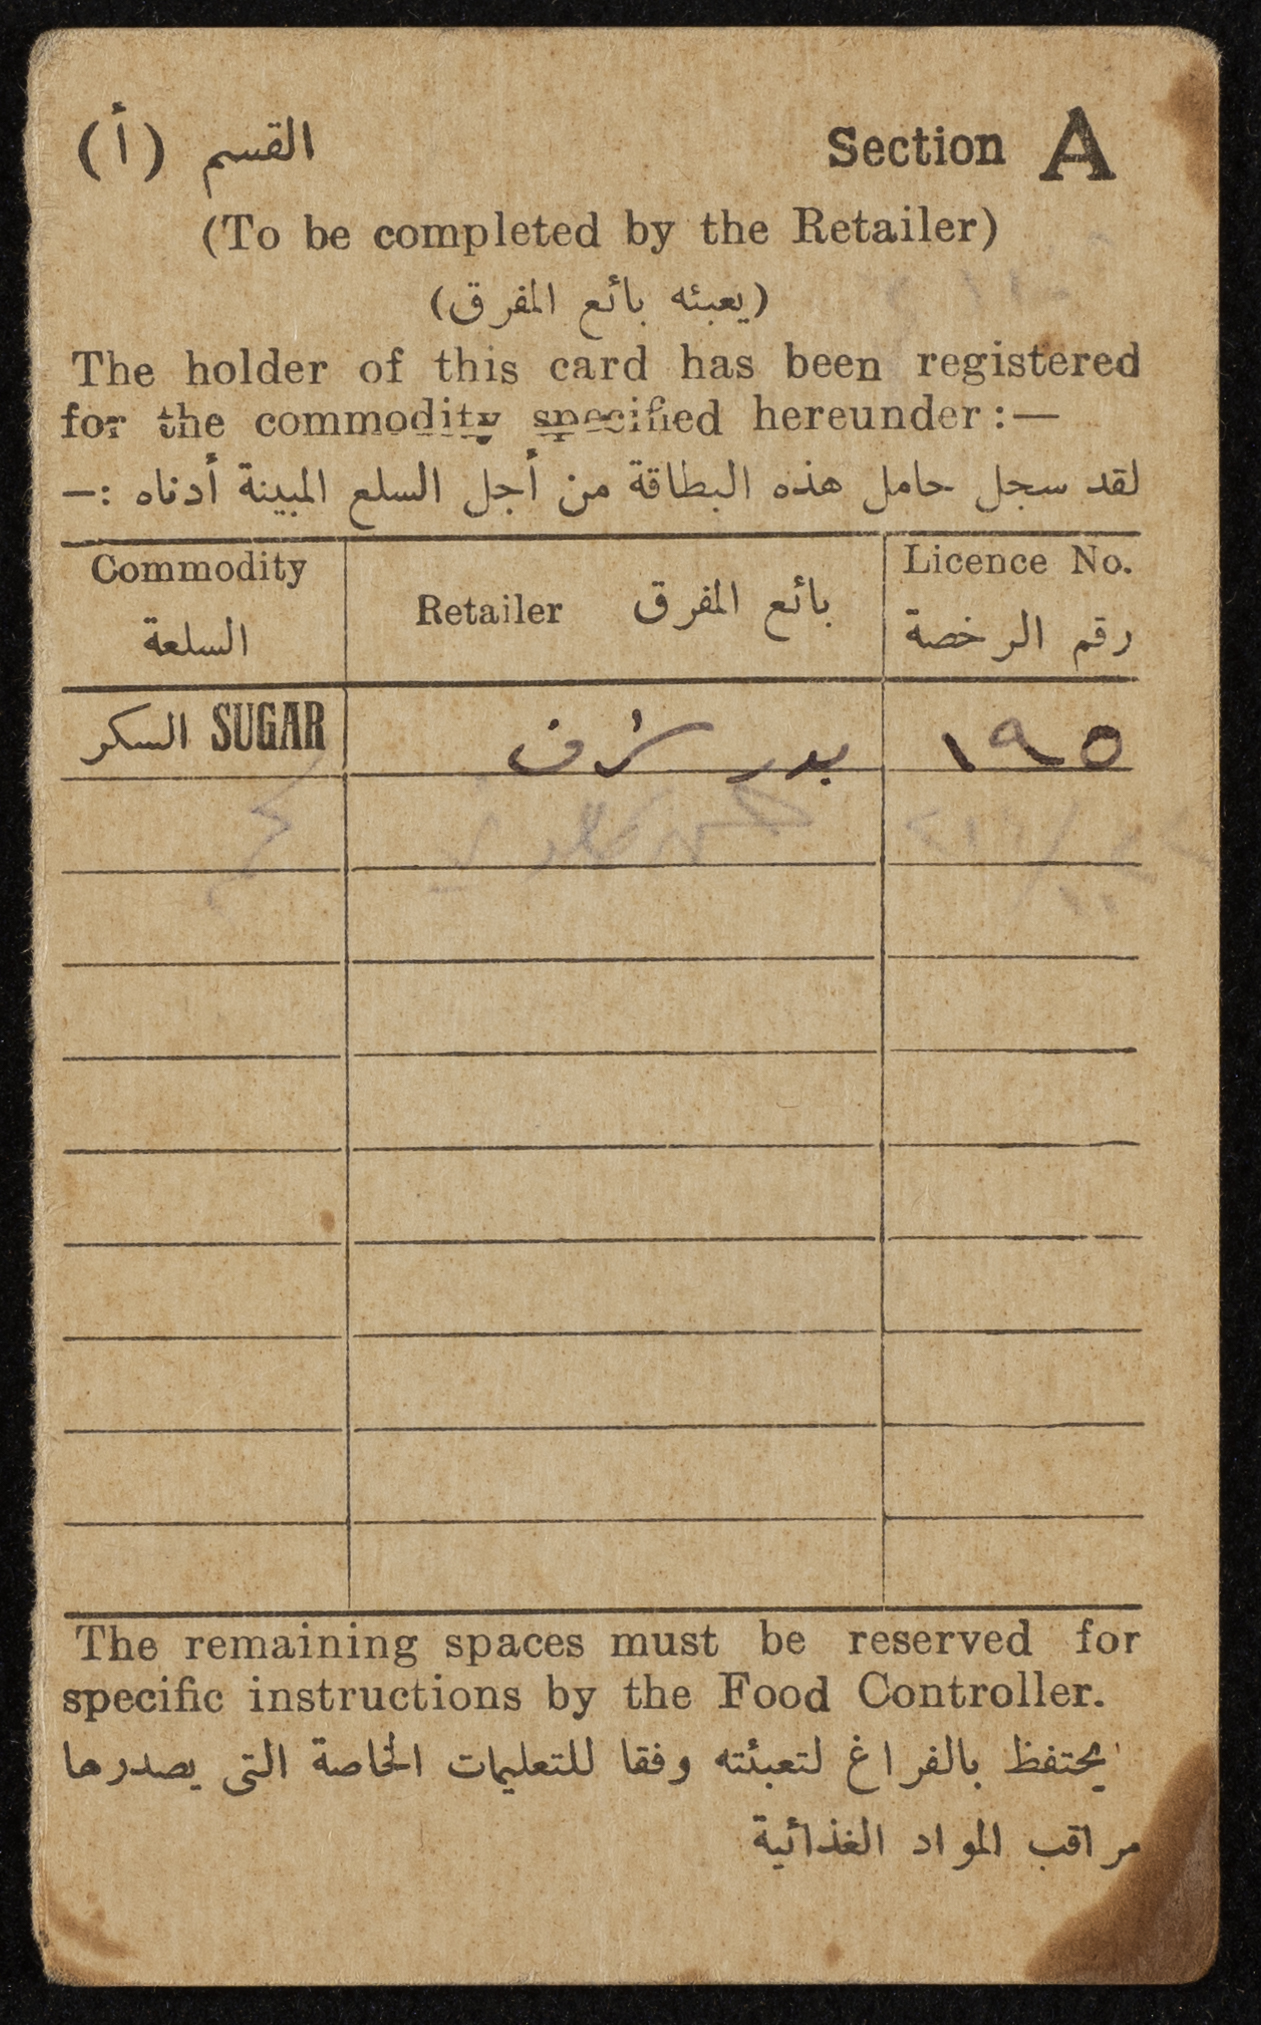 Section A القسم (أ)
(To be completed by the Retailer)
(يعبئه بائع المفرق)
The holder of this card has been registered
for the commodity specified hereunder:—
لقد سجل حامل هذه البطاقة من أجل السلع المبينة أدناه :—
Commodity Retailer بائع المفرق Licence No.
السلعة رقم الرخصة
السكر SUGAR بدر شرف ١٩٥
The remaining spaces must be reserved for
specific instructions by the Food Controller.
يحتفظ بالفراغ لتعبئته وفقا للتعليمات الخاصة التى يصدرها
مراقب المواد الغذائية